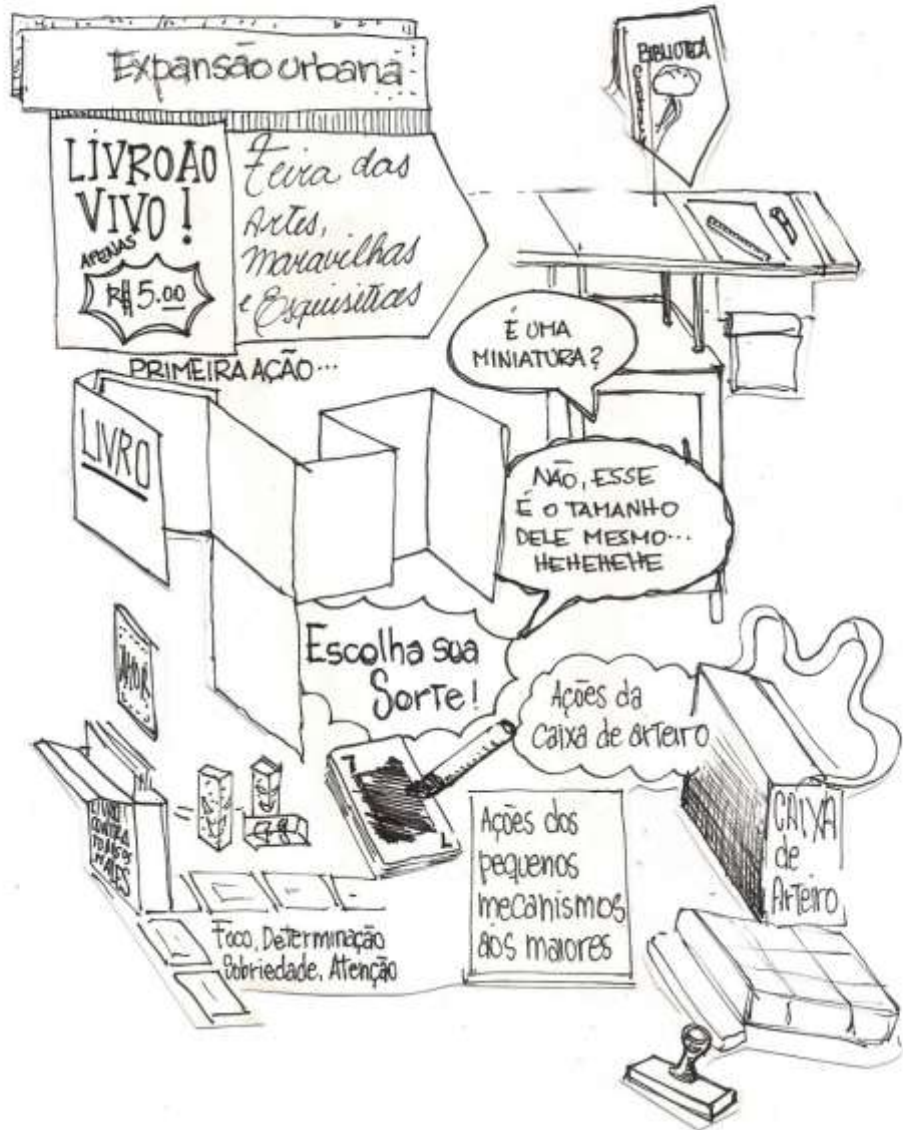 Expansão urbana
BIBLIOTECA
LIVRO AO
VIVO!
APENAS
R$ 5.00
Feira das
Artes,
maravilhas
e Esquisitices
PRIMEIRA AÇÃO...
LIVRO
É UMA
MINIATURA?
NÃO, ESSE
É O TAMANHO
DELE MESMO...
HEHEHEHE
Escolha sua
Sorte!
Ações da
caixa de arteiro
LIVRO
CONTRA
TODOS OS
MALES
Ações dos
pequenos
mecanismos
aos maiores
CAIXA
de
Arteiro
Foco, Determinação
Sobriedade, Atenção